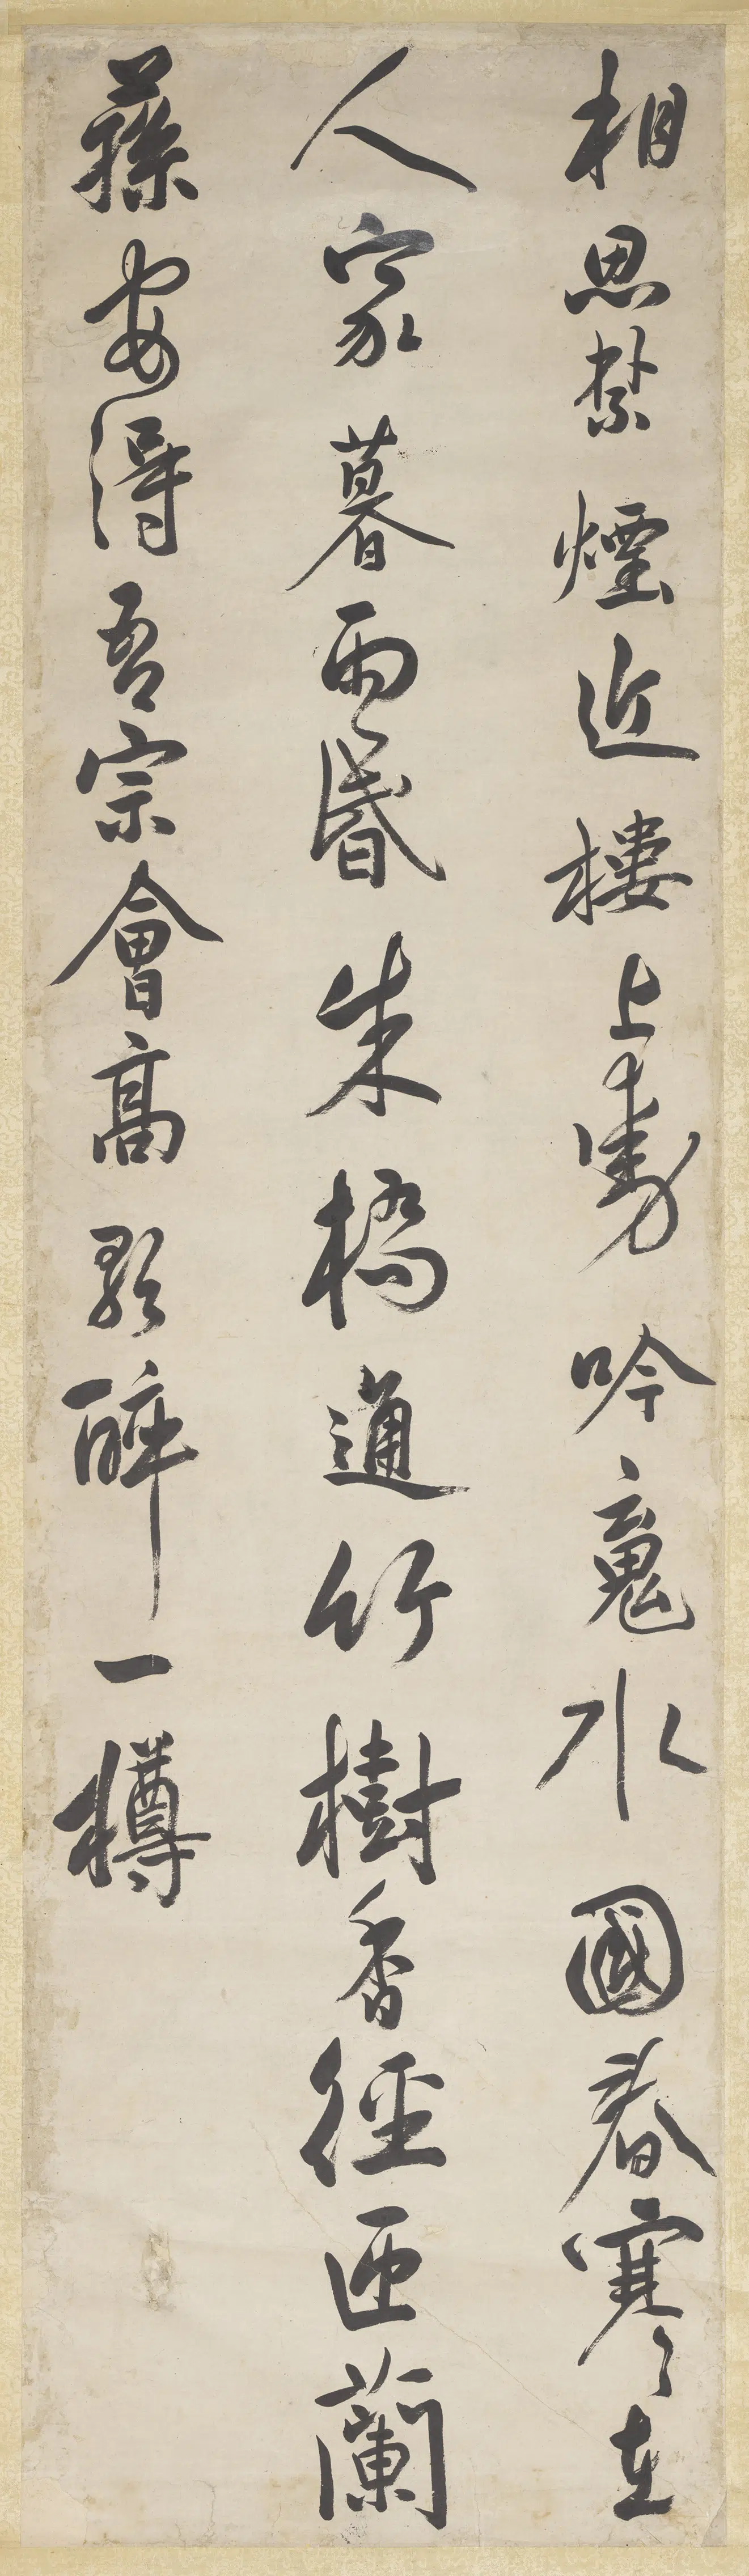 相思禁煙近樓上動吟魂水國春寒在
人家暮雨昏朱橋通竹樹香徑匝蘭
蓀安得吾宗會高歌醉一樽